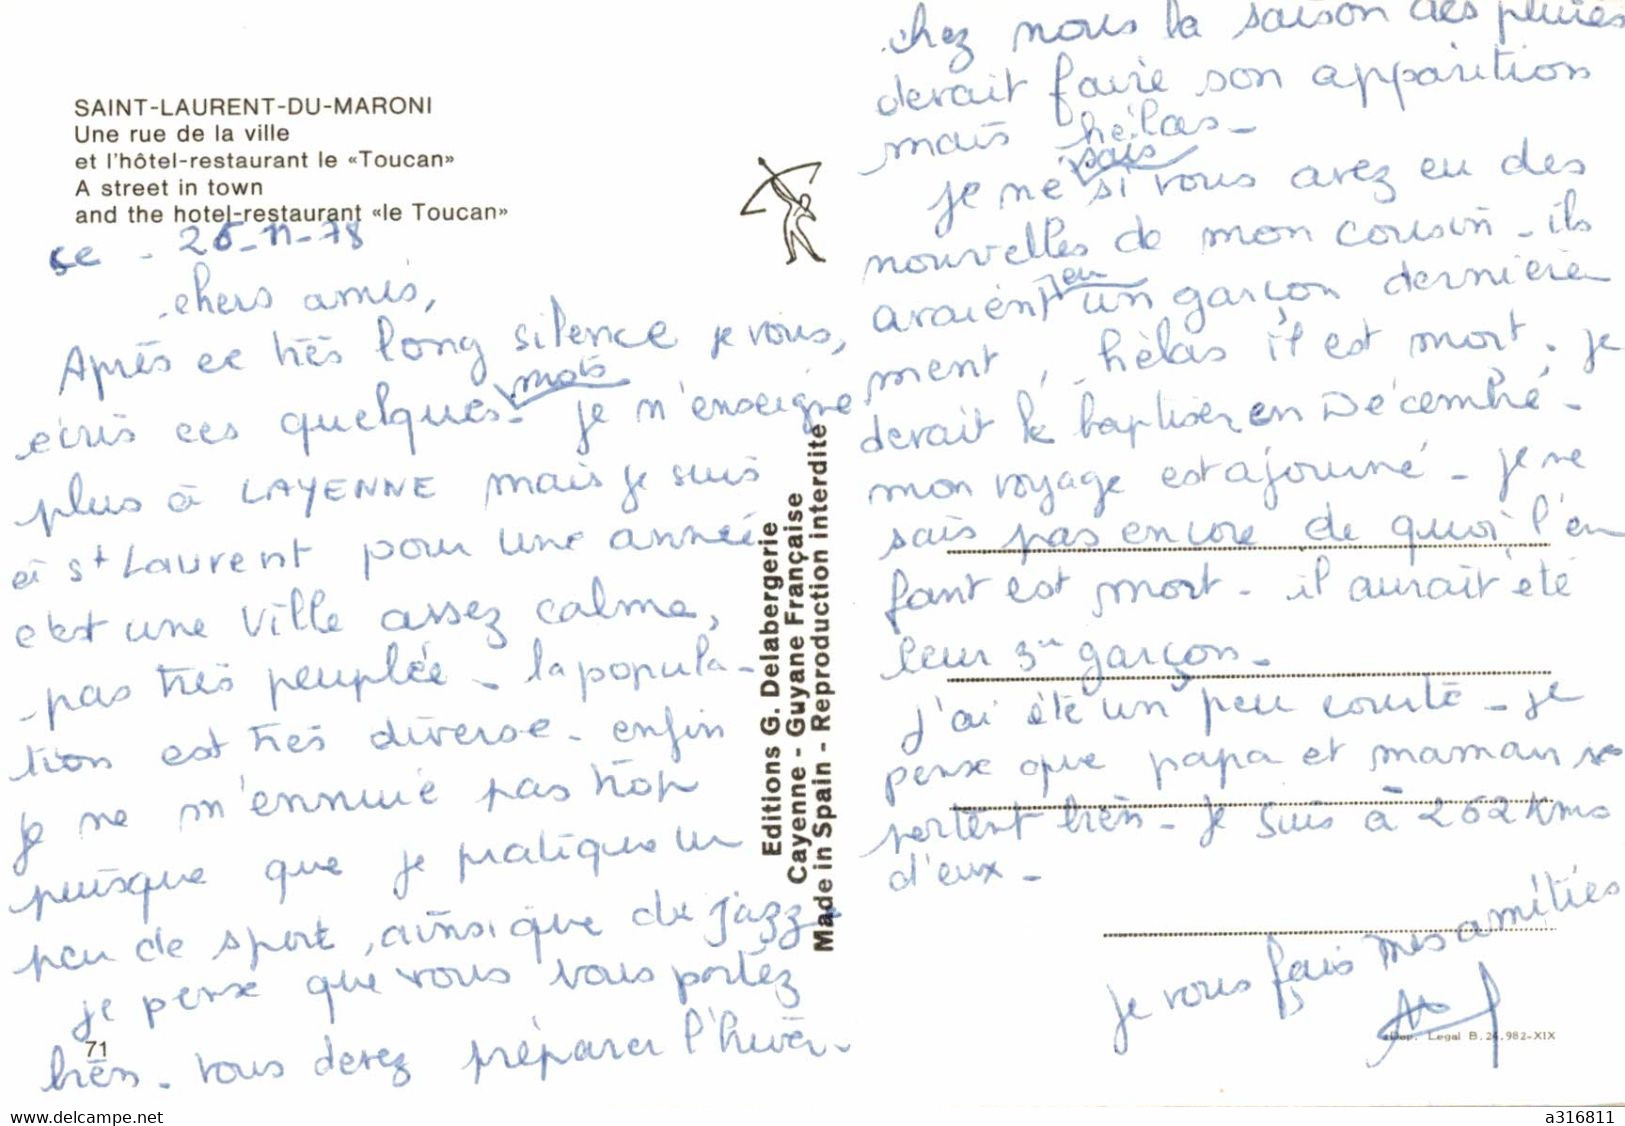 SAINT-LAURENT-DU-MARONI
Une rue de la ville
et l'hôtel-restaurant le «Toucan»
A street in town
and the hotel-restaurant «le Toucan»
ce - 26-11-78
chers amis,
Après ce très long silence je vous,
écris ces quelques mots - je n'enseigne
plus à CAYENNE mais je suis
à St Laurent pour une année
c'est une ville assez calme,
pas très peuplée - la popula-
tion est très diverse - enfin
je ne m'ennuie pas trop
puisque que je pratique un
peu de sport, ainsi que du jazz -
je pense que vous vous portez
bien - vous devez préparer l'hiver -
71
Editions G. Delabergerie
Cayenne - Guyane Française
Made in Spain - Reproduction interdite
chez nous la saison des pluies
devait faire son apparition
mais hélas -
je ne sais si vous avez eu des
nouvelles de mon cousin - ils
avaient eu un garçon dernière
ment, hélas il est mort. je
devait le baptiser en Décembre -
mon voyage est ajourné - je ne
sais pas encore de quoi l'en
fant est mort - il aurait été
leur 3e garçon -
J'ai été un peu courte - je
pense que papa et maman se
portent bien - je suis à 262 kms
d'eux -
je vous fais mes amitiés
Dep. Legal B. 24.982-XIX
www.delcampe.net
a316811